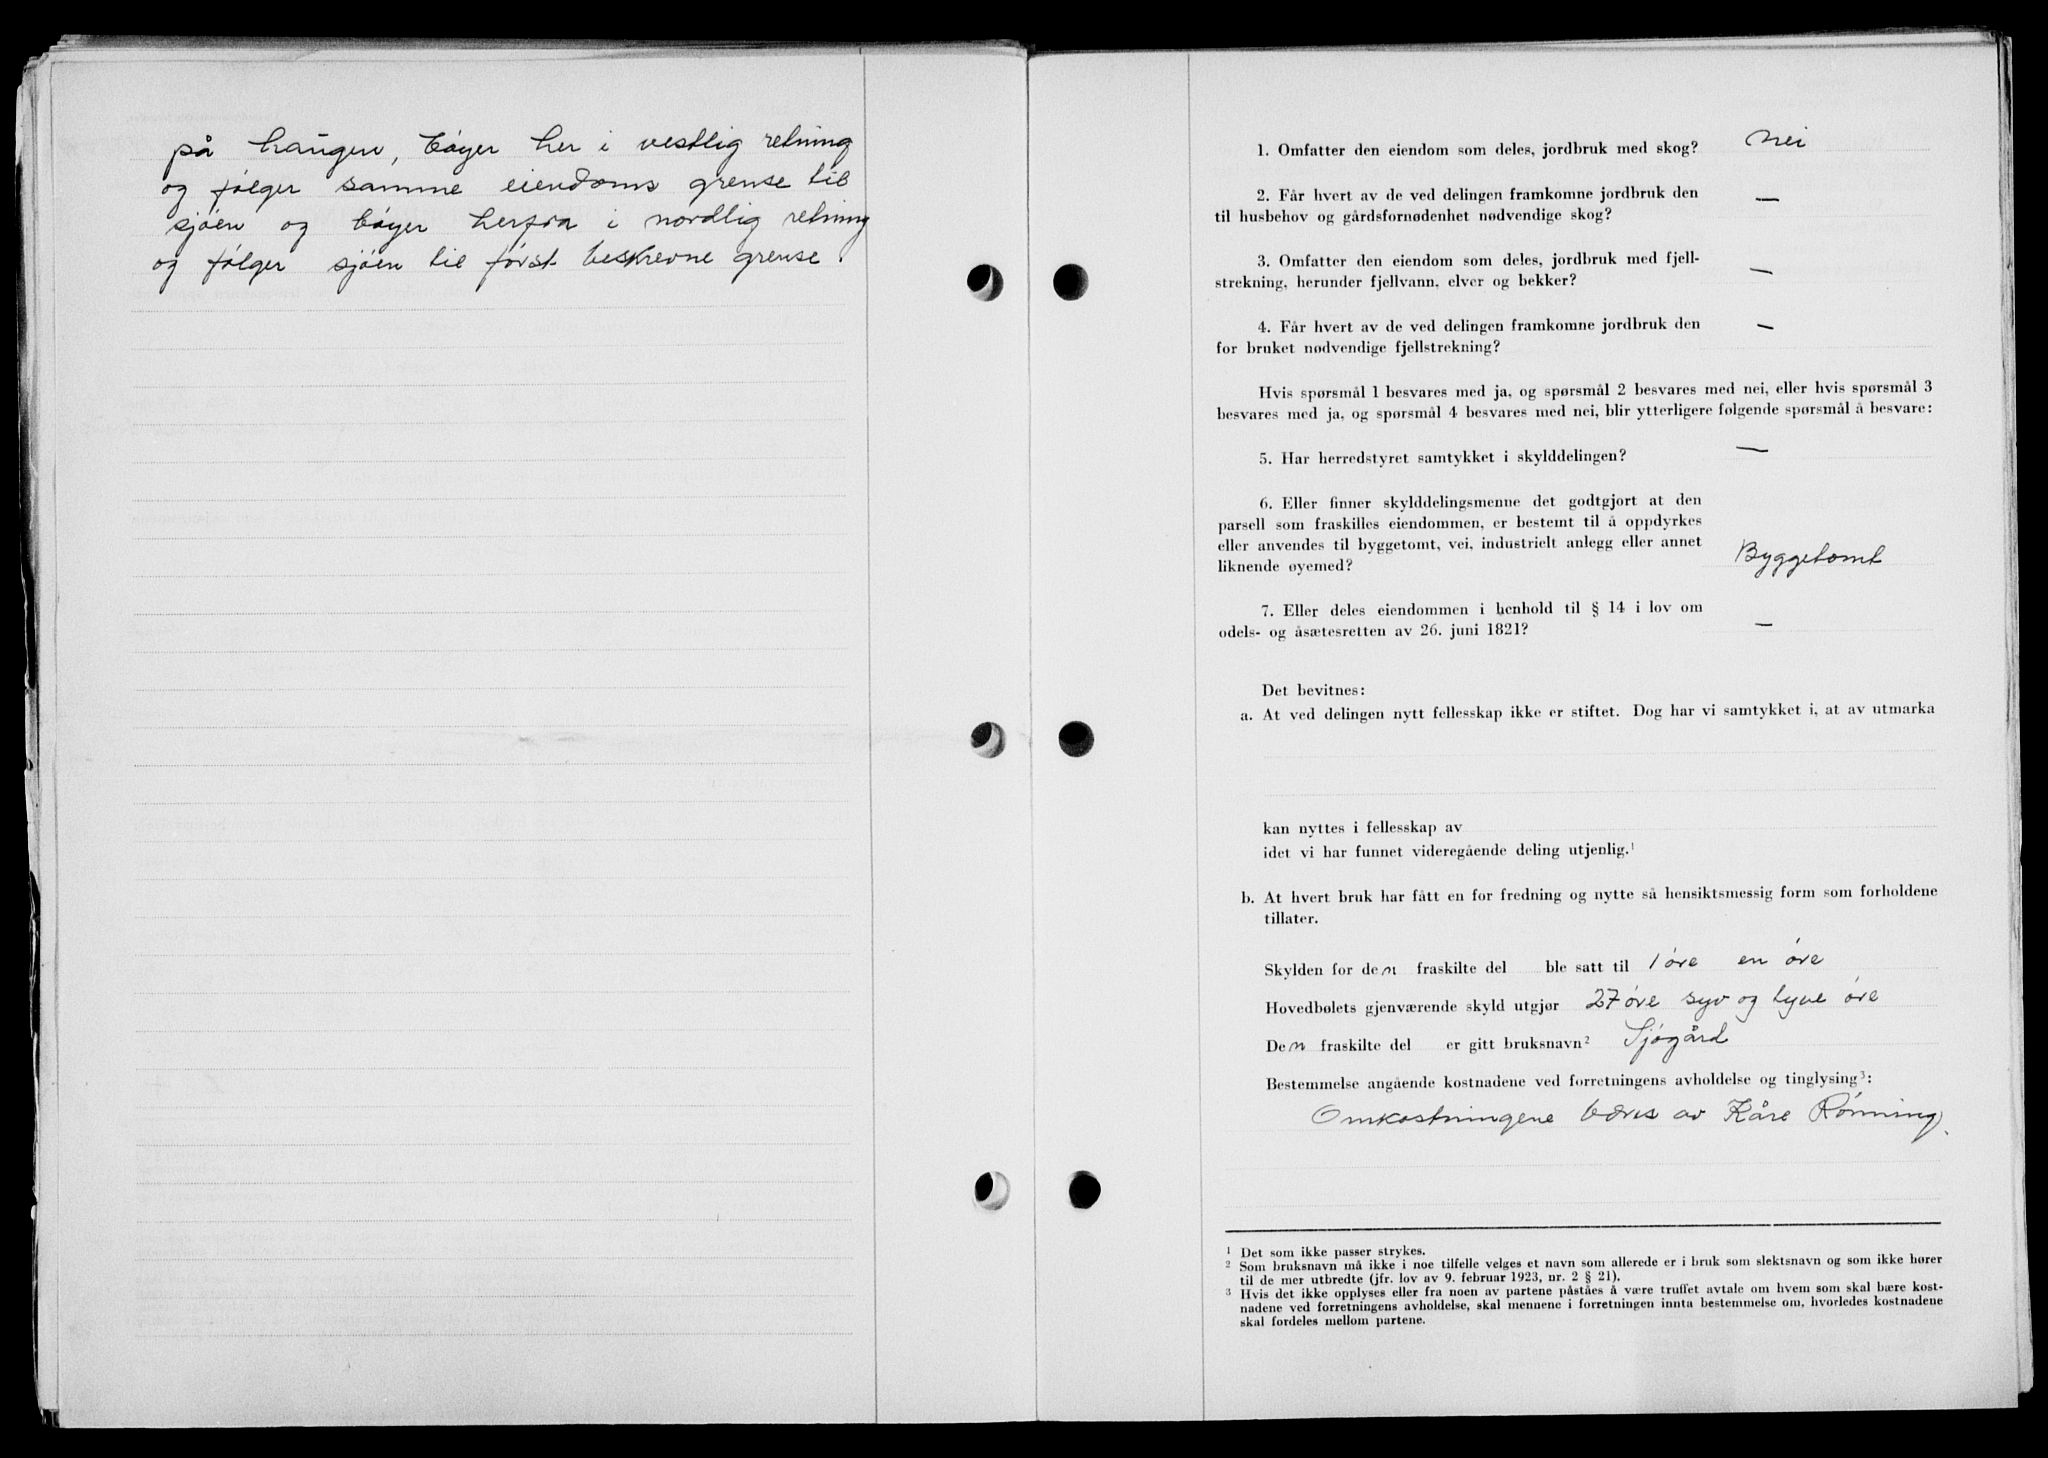 på haugen, bøyer her i vestlig retning
og følger samme eiendoms grense til
sjøen og bøyer herfra i nordlig retning
og følger sjøen til først beskrevne grense
1. Omfatter den eiendom som deles, jordbruk med skog? nei
2. Får hvert av de ved delingen framkomne jordbruk den
til husbehov og gårdsfornødenhet nødvendige skog? —
3. Omfatter den eiendom som deles, jordbruk med fjell-
strekning, herunder fjellvann, elver og bekker? —
4. Får hvert av de ved delingen framkomne jordbruk den
for bruket nødvendige fjellstrekning? —
Hvis spørsmål 1 besvares med ja, og spørsmål 2 besvares med nei, eller hvis spørsmål 3
besvares med ja, og spørsmål 4 besvares med nei, blir ytterligere følgende spørsmål å besvare:
5. Har herredstyret samtykket i skylddelingen? —
6. Eller finner skylddelingsmenne det godtgjort at den
parsell som fraskilles eiendommen, er bestemt til å oppdyrkes
eller anvendes til byggetomt, vei, industrielt anlegg eller annet
liknende øyemed? Byggetomt
7. Eller deles eiendommen i henhold til § 14 i lov om
odels- og åsætesretten av 26. juni 1821? —
Det bevitnes:
a. At ved delingen nytt fellesskap ikke er stiftet. Dog har vi samtykket i, at av utmarka
kan nyttes i fellesskap av
idet vi har funnet videregående deling utjenlig.¹
b. At hvert bruk har fått en for fredning og nytte så hensiktsmessig form som forholdene
tillater.
Skylden for den fraskilte del ble satt til 1 øre en øre
Hovedbølets gjenværende skyld utgjør 27 øre syv og tyve øre
Den fraskilte del er gitt bruksnavn² Sjøgård
Bestemmelse angående kostnadene ved forretningens avholdelse og tinglysing³:
Omkostningene bæres av Kåre Rønning.
¹ Det som ikke passer strykes.
² Som bruksnavn må ikke i noe tilfelle velges et navn som allerede er i bruk som slektsnavn og som ikke hører
til de mer utbredte (jfr. lov av 9. februar 1923, nr. 2 § 21).
³ Hvis det ikke opplyses eller fra noen av partene påståes å være truffet avtale om hvem som skal bære kost-
nadene ved forretningens avholdelse, skal mennene i forretningen innta bestemmelse om, hvorledes kostnadene
skal fordeles mellom partene.